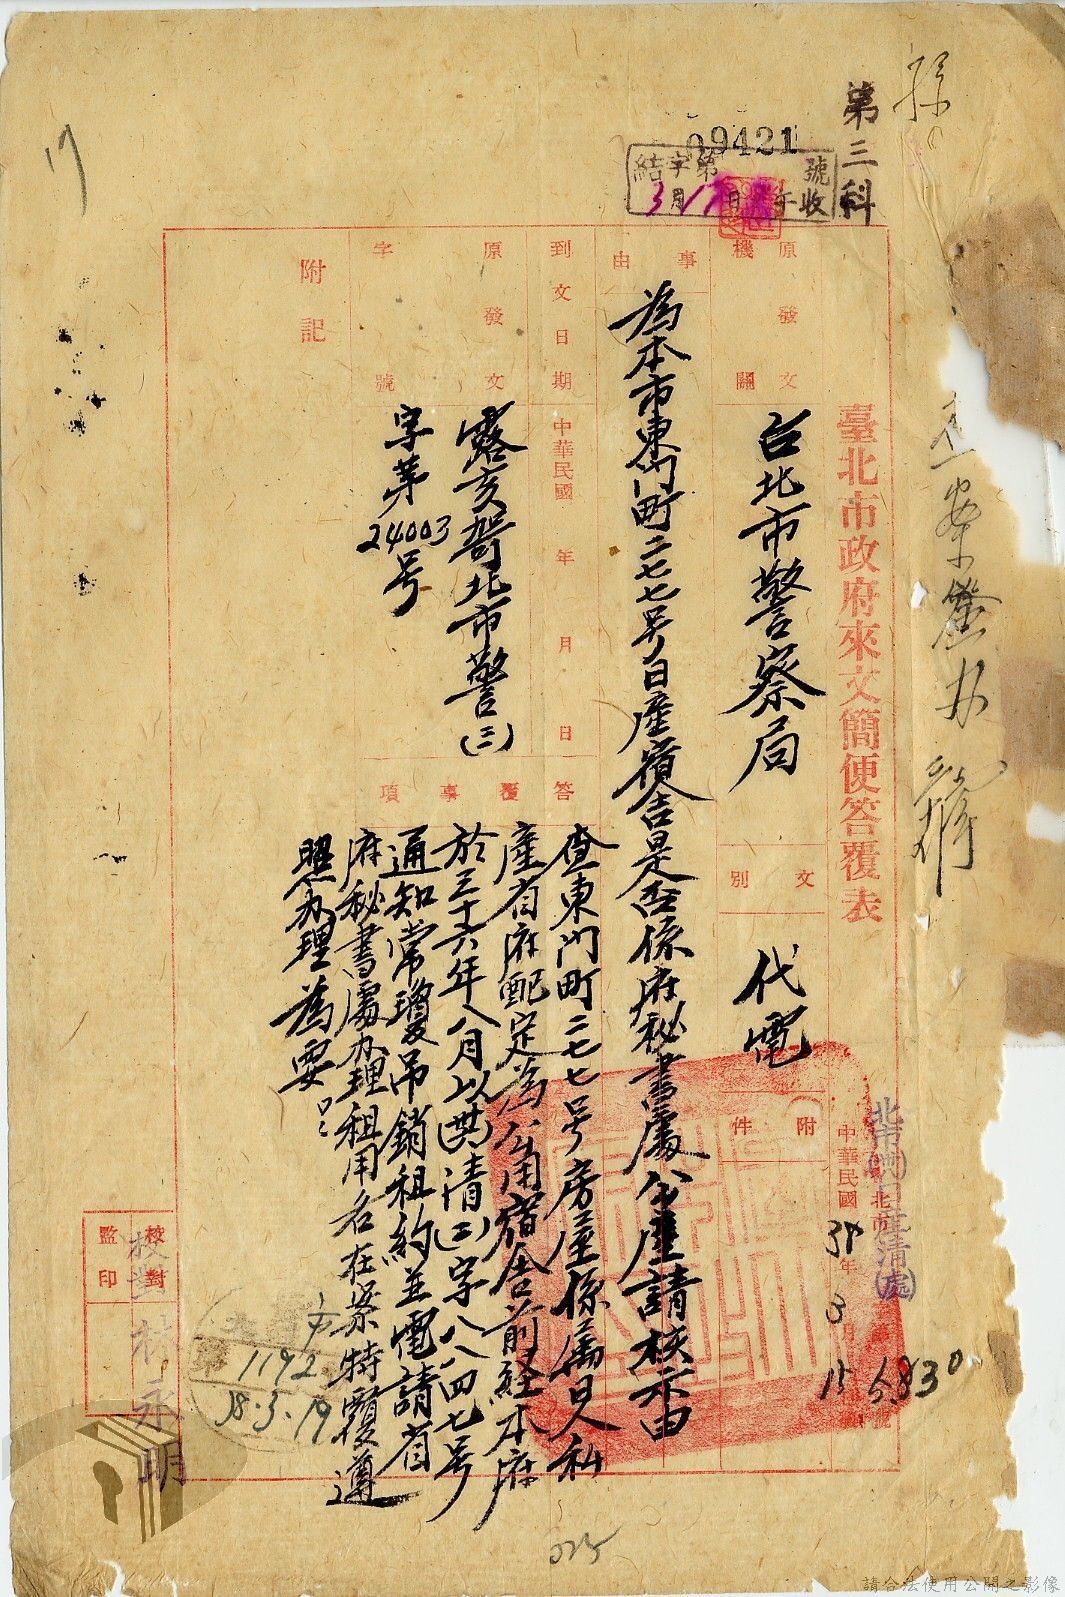 孫
第三科
09421
結字第 號
3月17日 午收
臺北市政府來文簡便答覆表
中華民國38年3月15日
北市
6830
原發文機關
台北市警察局
文別
代電
附件
事由
為本市東門町二七七号日產宿舍是否係府秘書處公產請核示由
到文日期
中華民國 年 月 日
原發文字號
露亥 北市警(三)
字第24003号
答覆事項
查東門町二七七号房屋係屬日人私
產省府配定為公用宿舍前經本府
於三十六年八月以 清(二)字八八四七号
通知常瓊吊銷租約並電請省
府秘書處办理租用名在案特覆遵
照办理為要
附記
校對
監印
校對 林永明
1192
38.3.19
025
請合法使用公開之影像